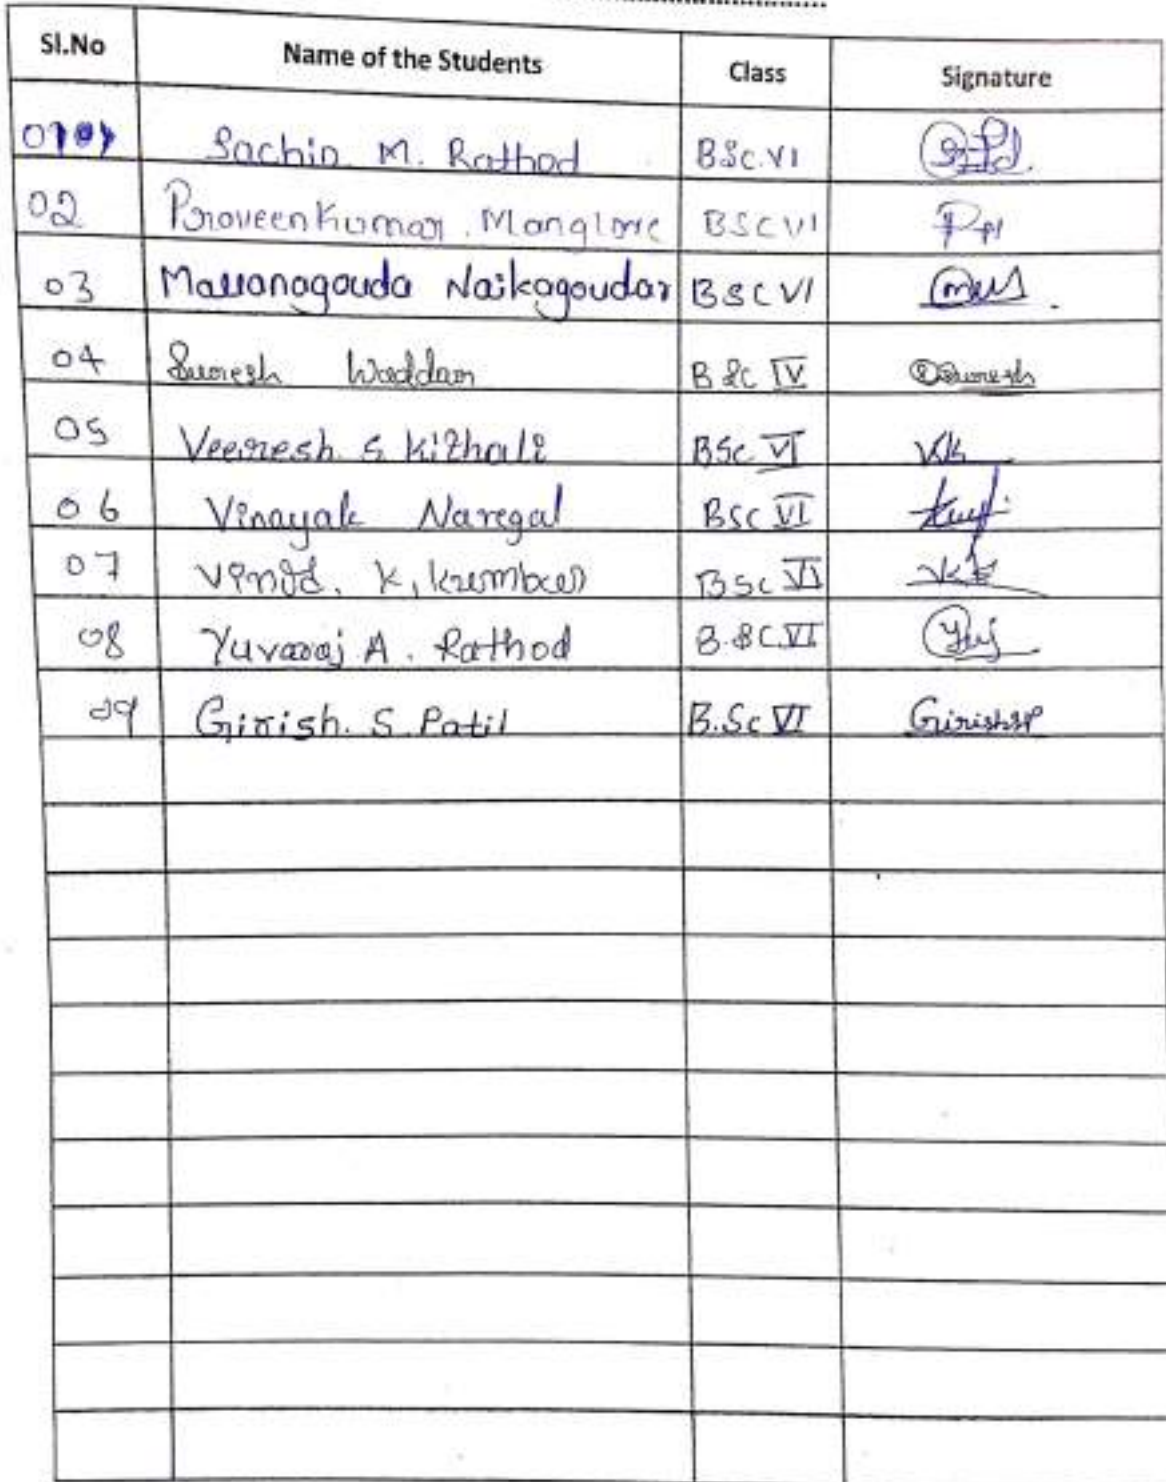 Sl.No Name of the Students Class Signature
01 Sachin M. Rathod BSc.VI
02 Praveenkumar. Manglore BSC VI
03 Mallanagouda Naikagoudar BSC VI
04 Suresh Waddar BSc IV Suresh
05 Veeresh S Kithali BSc VI VK
06 Vinayak Naregal BSc VI
07 Vinod. K, kumbar BSc VI
08 Yuvaraj A. Rathod B.SC.VI
09 Girish. S. Patil B.Sc VI GirishSP